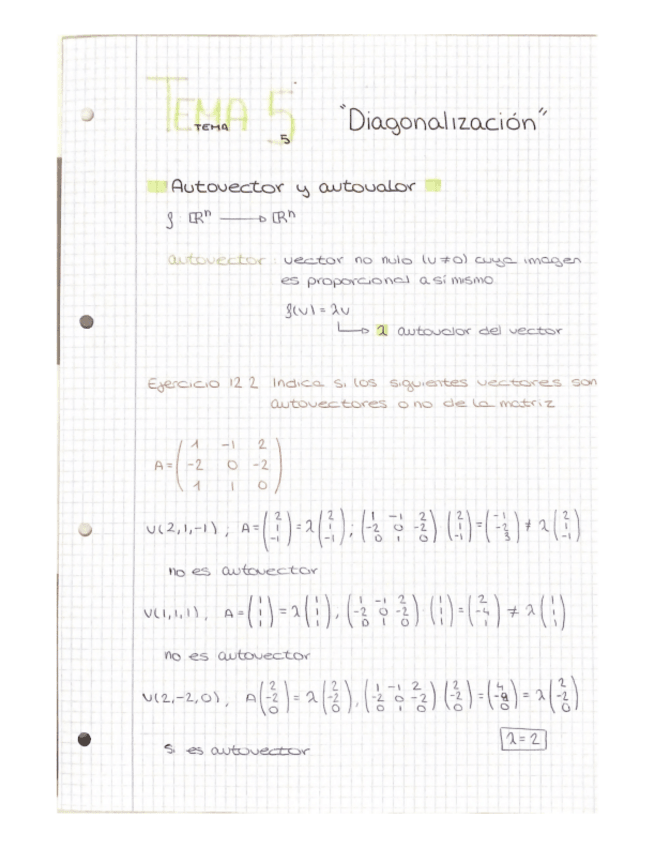 TEMA 5 "Diagonalización"
TEMA
5
Autovector y autovalor
f ℝⁿ → ℝⁿ
autovector: vector no nulo (v≠0) cuya imagen
es proporcional a sí mismo
f(v) = λv
↳ λ autovalor del vector
Ejercicio 12 2 Indica si los siguientes vectores son
autovectores o no de la matriz
1 -1 2
A = -2 0 -2
1 1 0
v(2,1,-1); A=(2 1 -1) = λ(2 1 -1); (1 -1 2 -2 0 -2 0 1 0) (2 1 -1) = (-1 -2 3) ≠ λ(2 1 -1)
no es autovector
v(1,1,1), A=(1 1 1) = λ(1 1 1), (1 -1 2 -2 0 -2 0 1 0)·(1 1 1) = (2 -4 1) ≠ λ(1 1 1)
no es autovector
v(2,-2,0), A(2 -2 0) = λ(2 -2 0), (1 -1 2 -2 0 -2 0 1 0) (2 -2 0) = (4 0) = λ(2 -2 0)
λ=2
s es autovector